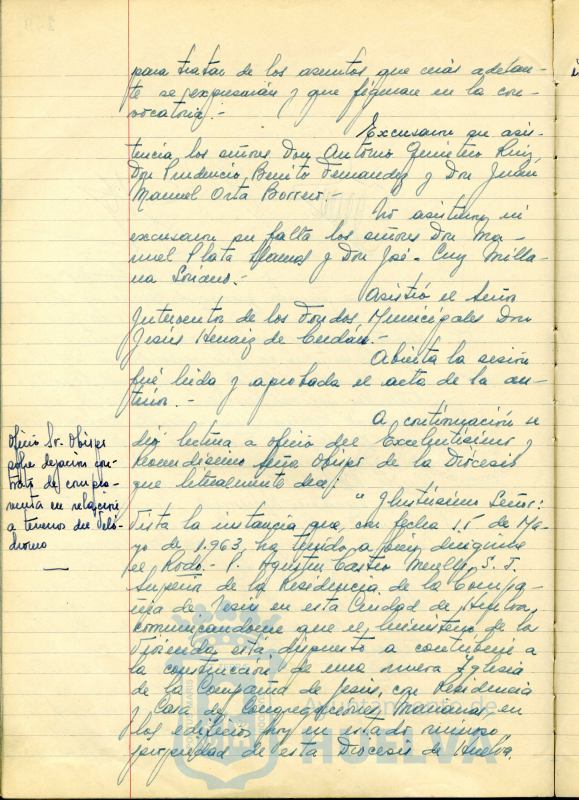 para tratar de los asuntos que más adelan-
te se expresarán y que figuran en la con-
vocatoria.-
Excusaron su asis-
tencia los señores Don Antonio Quintero Ruiz,
Don Prudencio Benito Fernandez y Don Juan
Manuel Orta Borrero.-
No asistieron ni
excusaron su falta los señores Don Ma-
nuel Plata Llamas y Don José-Cruz Milla-
na Soriano.-
Asistió el Señor
Interventor de los Fondos Municipales Don
Jesús de
Abierta la sesión
fué leida y aprobada el acta de la an-
terior.-
A continuación se
dió lectura a oficio del Excelentísimo y
Reverendísimo Señor Obispo de la Diócesis
que literalmente dice:
Oficio Sr. Obispo
sobre dejación con-
trato de compra-
venta en relación
a terrenos del Veló-
dromo
" Ilustrísimo Señor:
Vista la instancia que, con fecha de Ma-
yo de 1.963, ha tenido a bien dirigirme
el Rvdo. P. Agustín Castro S. J.
Superior de la Residencia de la Compa-
ñia de Jesús en esta Ciudad de Huelva,
comunicandome que el Ministerio de la
Vivienda está dispuesto a contribuir a
la construcción de una nueva Iglesia
de la Compañia de Jesús, con Residencia
y Casa de Congregaciones Marianas, en
los edificios hoy en estado ruinoso
propiedad de esta Diócesis de Huelva.
Ayuntamiento de
HUELVA